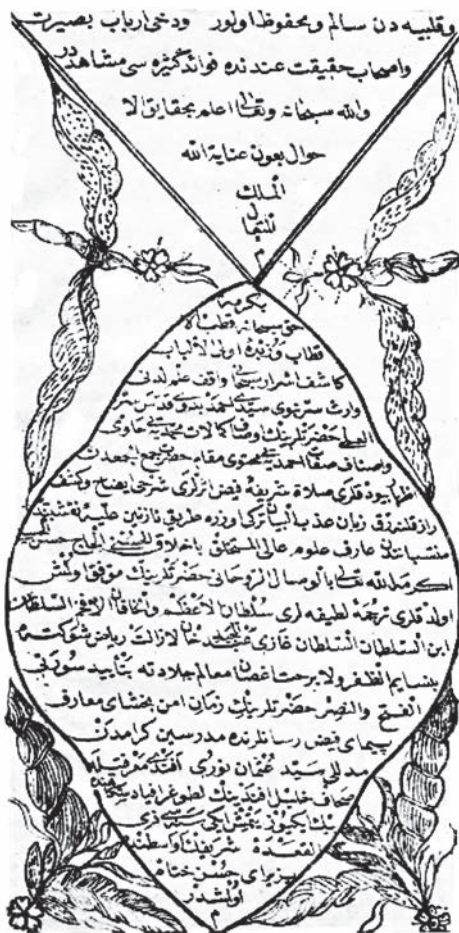 وقلبيه دن سالم ومحفوظ اولور ودخى ارباب بصيرت
واصحاب حقيقت عندنده فوائد كثيره سى مشاهد در
والله سبحانه وتعالى اعلم بحقايق الا
حوال بعون عناية الله
الملك
المتعال
م
بكرمه
حق سبحانه وقطب الا
قطاب وزبدهٔ اولى الالباب
كاشف اسرار سبحانى واقف علم لدنى
وارث سر نبوى سيدى احمد بدوى قدس سره
العلى حضرتلرينك اوصاف كمالات محمديه يى حاوى
واصناف صفات احمديه يى محتوى مقام حضرت جمع الجمعدن
اظهار بيوردقلرى صلاة شريفهٔ فيض اثرلرى شرحى ايضاح وكشف
راز قلندر زبان عذب البيان تركى اوزره طريق نازنين عليهٔ نقشبنديه
منتسباتندن عارف علوم عالى المتخلق باخلاق الحاج حسن
اكرمه الله تعالى بالوصال الروحانى حضرتلرينك موفق اولمش
اولدقلرى ترجمهٔ لطيفه لرى سلطان الاعظم والخاقان الافخم السلطان
ابن السلطان السلطان غازى عبد المجيد خان لازالت رياض شوكته
بنسايم الظفر ولا برحت اغصان معالم جلادته بتأييد سورتى
الفتح والنصر حضرتلرينك زمان امن بخشاى معارف
پيماى فيض رسانلرنده مدرسين كرامدن
مدللى سيد عثمان نورى افندى معرفتيله
صحاف خليل افندينك لطوغرافيا دستكاهنده
بيك ايكيوز يتمش ايكى سنه سى ذى
القعدهٔ شريفنك اواسطنده
پيرايه حسن ختام
اولمشدر
م